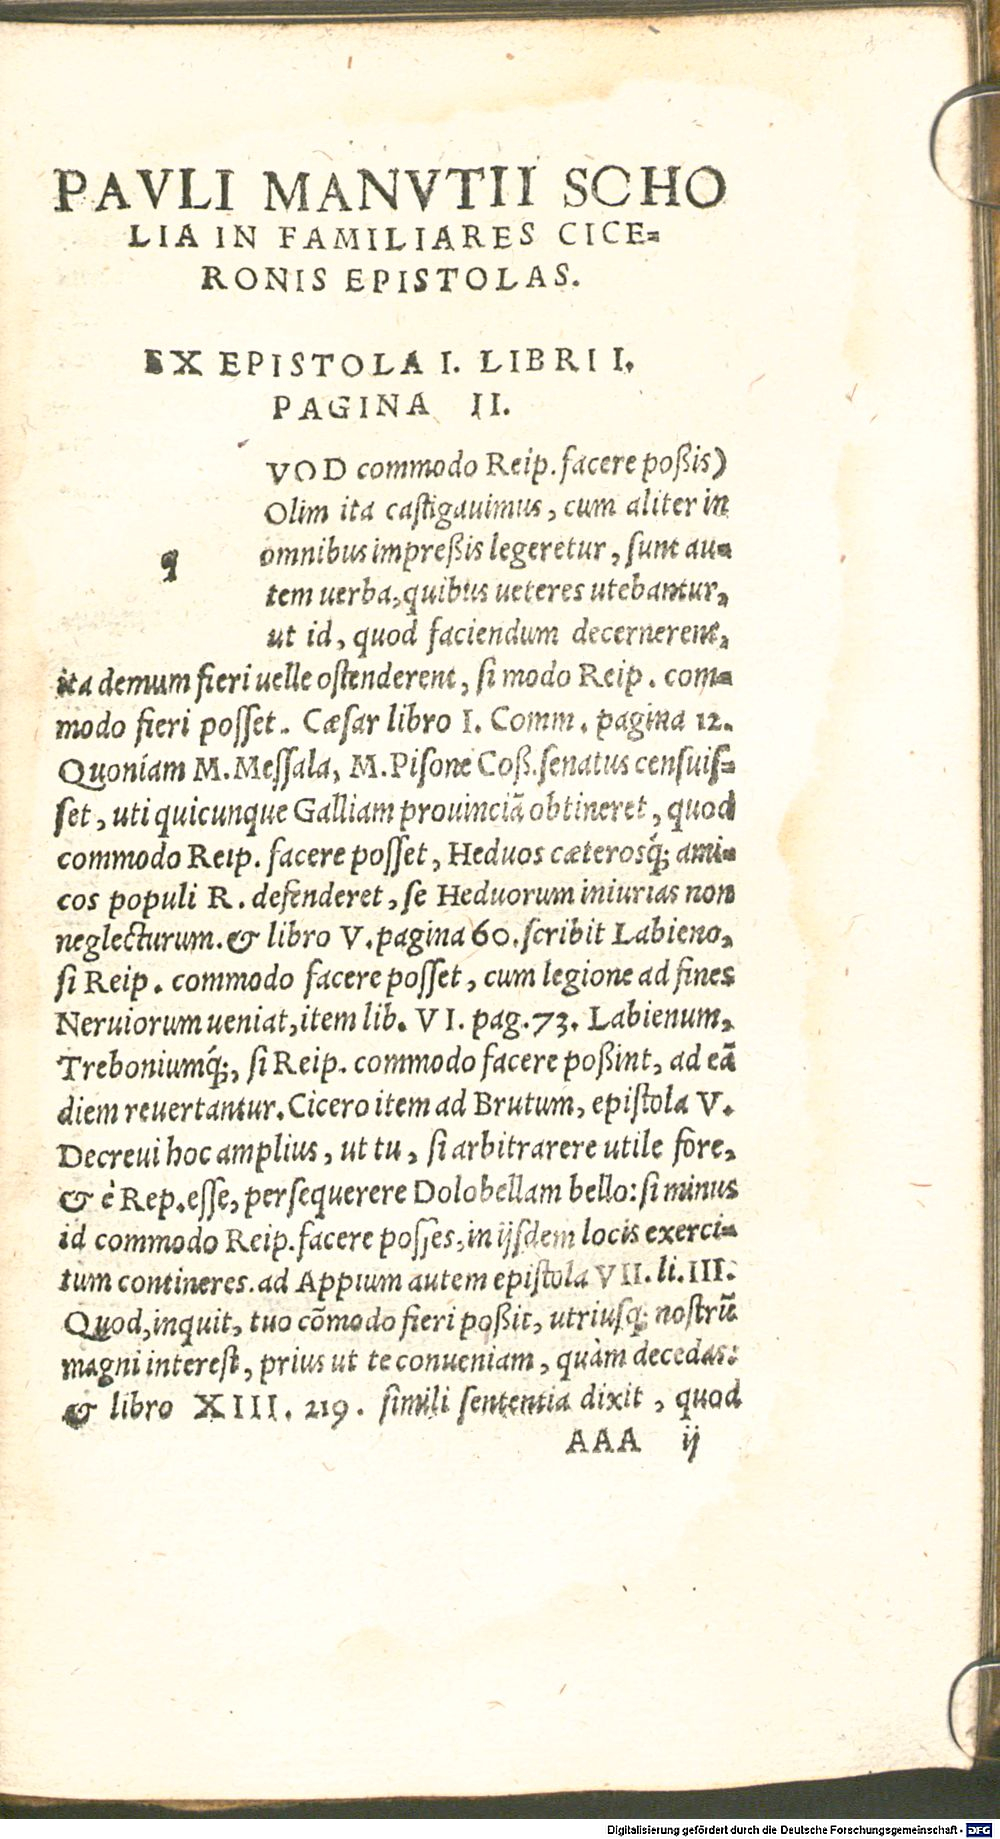 PAVLI MANVTII SCHO
LIA IN FAMILIARES CICE=
RONIS EPISTOLAS.
EX EPISTOLA I. LIBRI I.
PAGINA II.
q
VOD commodo Reip. facere poßis)
Olim ita castigauimus, cum aliter in
omnibus impreßis legeretur, sunt au=
tem uerba, quibus ueteres utebantur,
ut id, quod faciendum decernerent,
ita demum fieri uelle ostenderent, si modo Reip. com=
modo fieri posset. Cæsar libro I. Comm. pagina 12.
Quoniam M. Messala, M. Pisone Coß. senatus censuis=
set, uti quicunque Galliam prouinciā obtineret, quod
commodo Reip. facere posset, Heduos cæterosq́; ami=
cos populi R. defenderet, se Heduorum iniurias non
neglecturum. & libro V. pagina 60. scribit Labieno,
si Reip. commodo facere posset, cum legione ad fines
Neruiorum ueniat, item lib. VI. pag. 73. Labienum,
Treboniumq́;, si Reip. commodo facere poßint, ad eā
diem reuertantur. Cicero item ad Brutum, epistola V.
Decreui hoc amplius, ut tu, si arbitrarere utile fore,
& è Rep. esse, persequerere Dolobellam bello: si minus
id commodo Reip. facere posses, in ijsdem locis exerci=
tum contineres. ad Appium autem epistola VII. li. III.
Quod, inquit, tuo cōmodo fieri poßit, utriusq; nostrū
magni interest, prius ut te conueniam, quàm decedas:
& libro XIII. 219. simili sententia dixit, quod
AAA ij
Digitalisierung gefördert durch die Deutsche Forschungsgemeinschaft - DFG